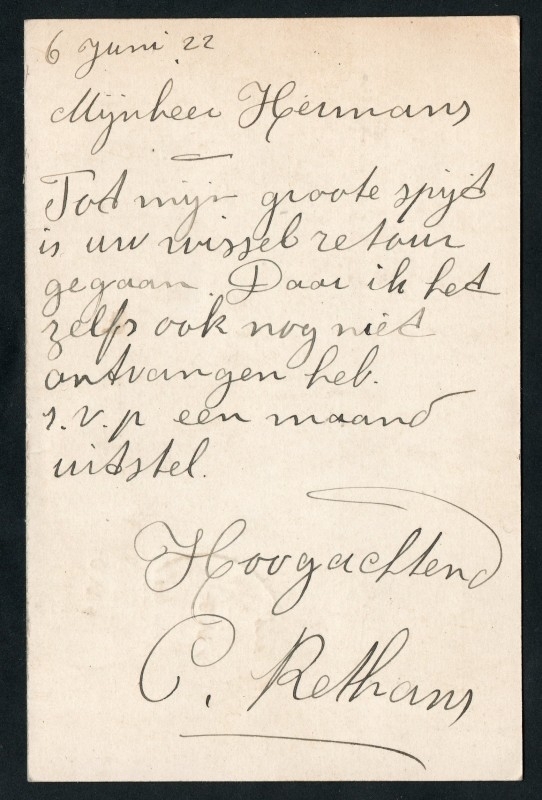 6 Juni 22
Mijnheer Hermans
Tot mijn groote spijt
is uw wissel retour
gegaan. Daar ik het
zelfs ook nog niet
ontvangen heb.
s.v.p een maand
uitstel.
Hoogachtend
C. Rethans